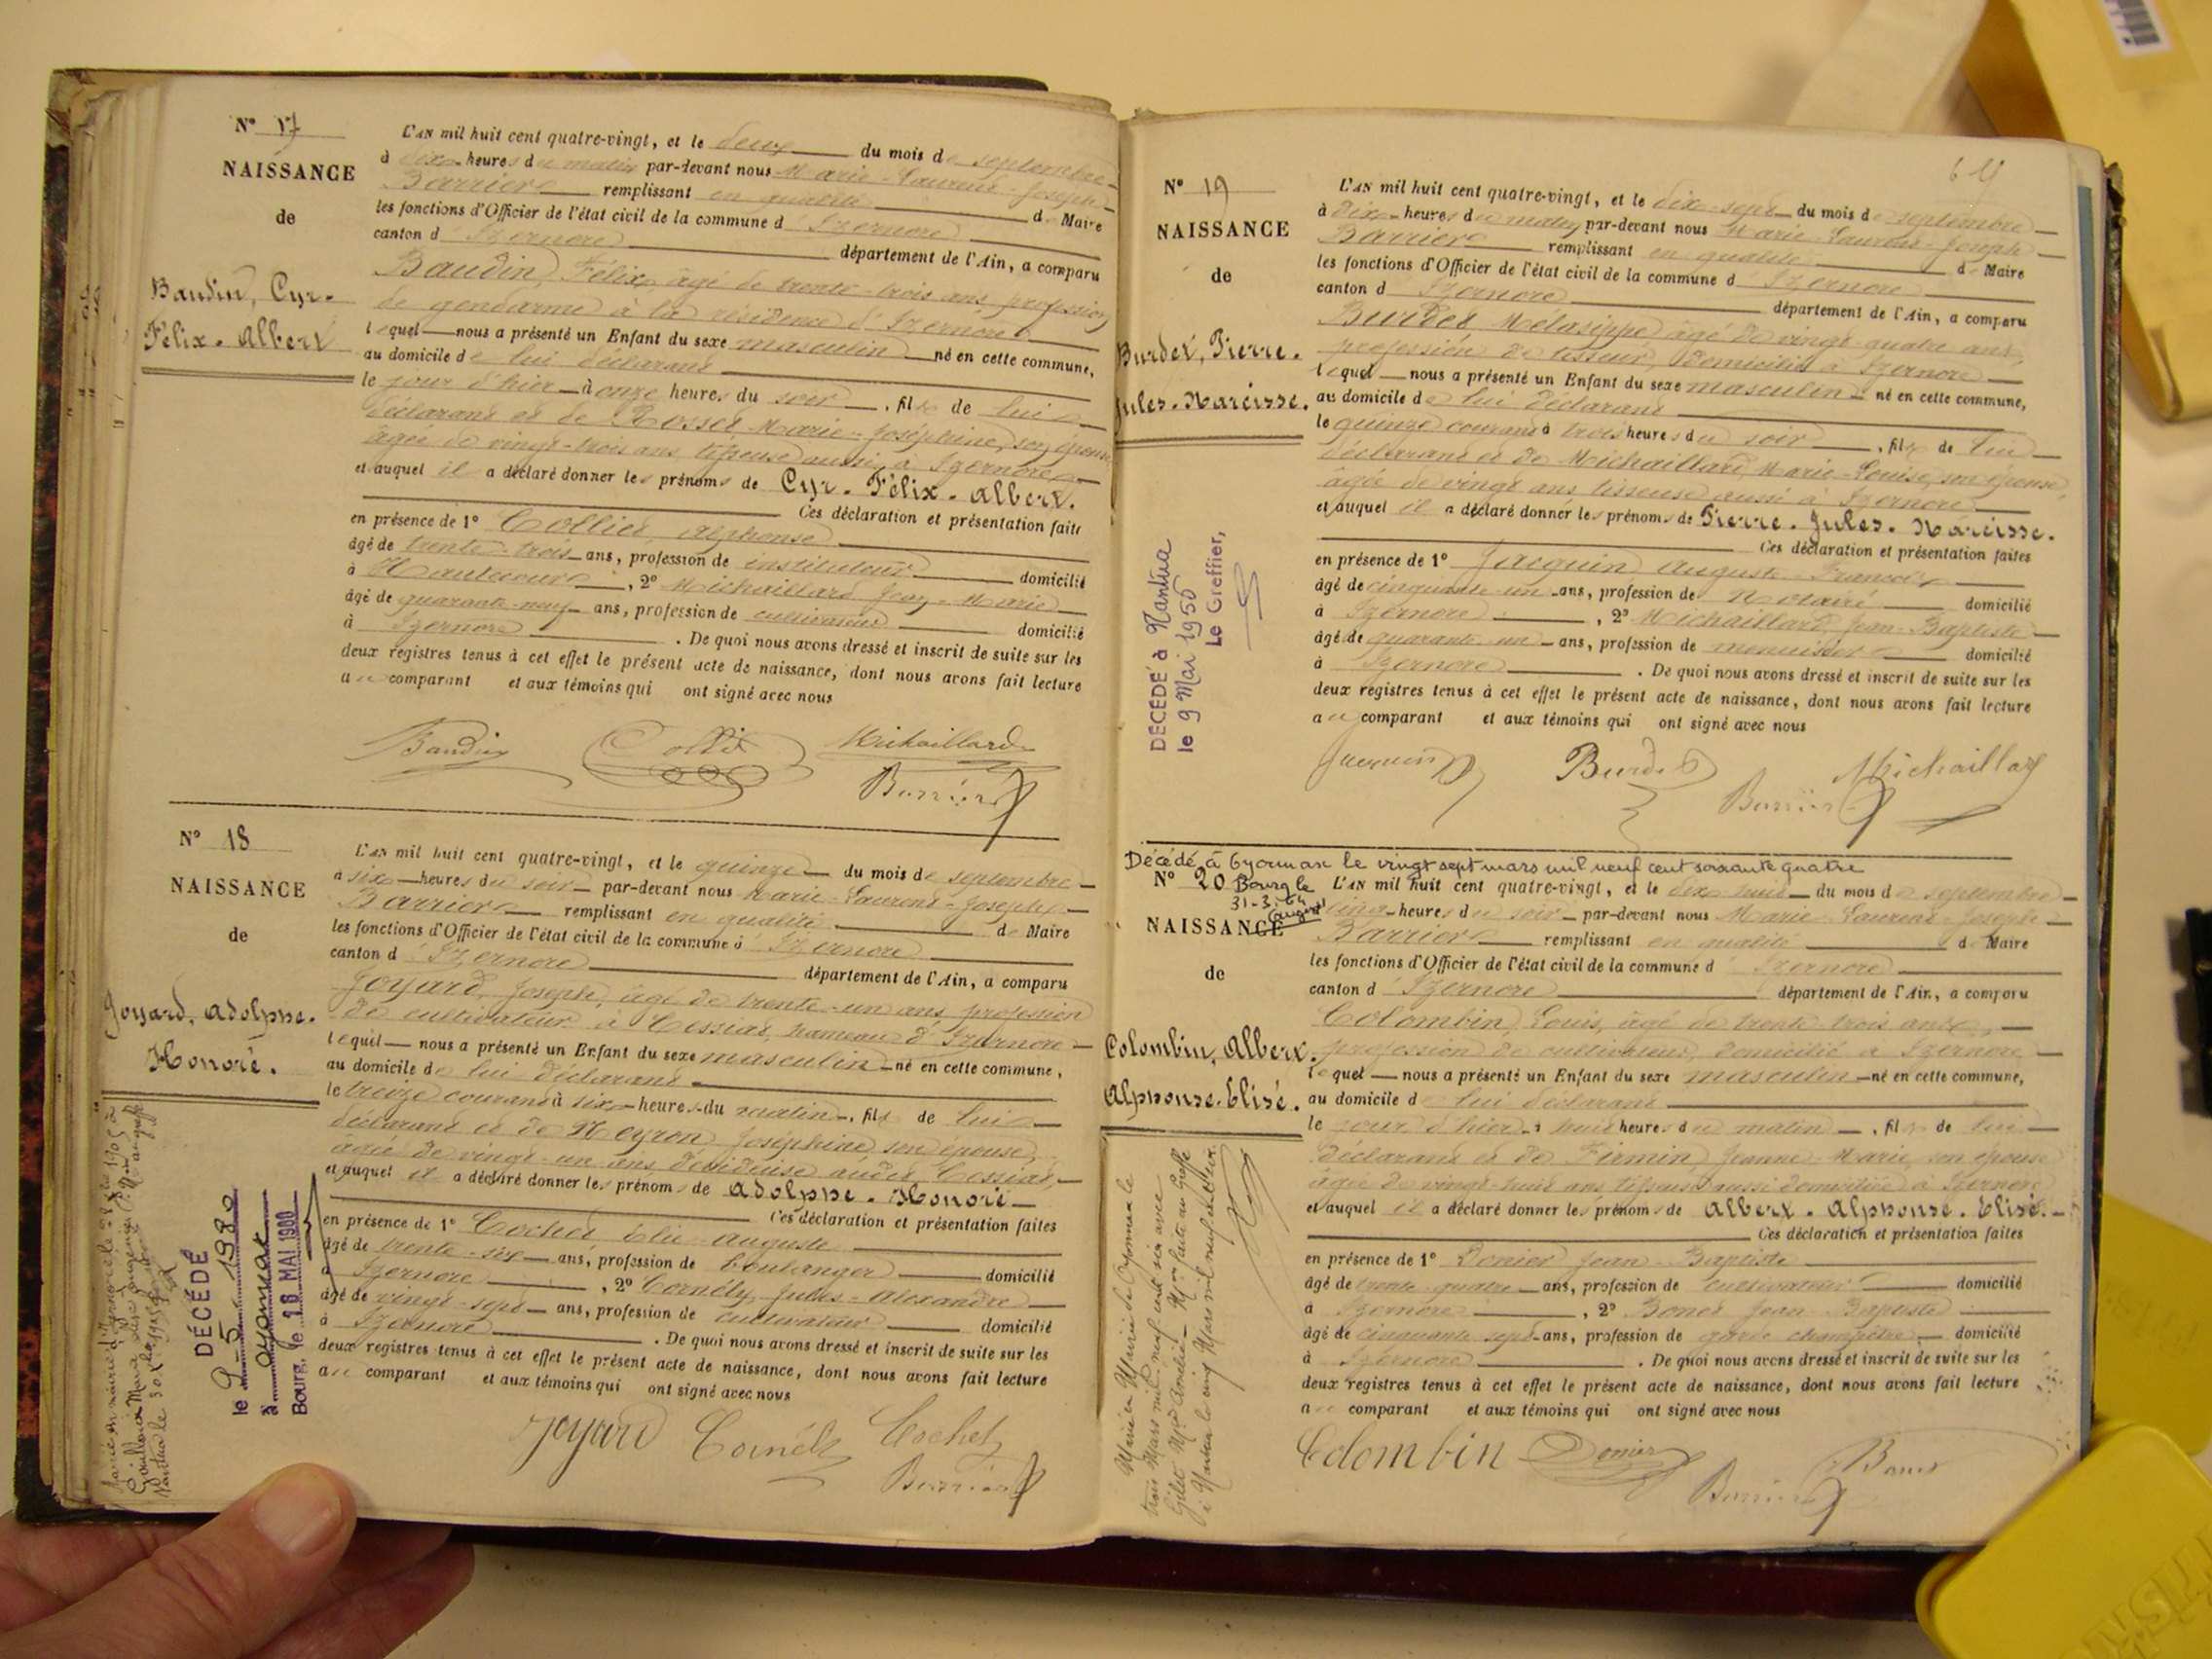 Nº 17
NAISSANCE
de
Baudin, Cyr-
Félix-Albert
L'AN mil huit cent quatre-vingt, et le deux du mois de septembre
à dix heures du matin par-devant nous Marie-Laurent-Joseph
Barrier remplissant en qualité de Maire
les fonctions d'Officier de l'état civil de la commune d'Izernore
canton d'Izernore département de l'Ain, a comparu
Baudin, Félix, âgé de trente-trois ans profession
de gendarme à la résidence d'Izernore
lequel nous a présenté un Enfant du sexe masculin né en cette commune,
au domicile de lui déclarant
le jour d'hier à onze heures du soir, fils de lui
déclarant et de Rosset Marie-Joséphine, son épouse
âgée de vingt-trois ans tisseuse aussi à Izernore
et auquel il a déclaré donner les prénoms de Cyr-Félix-Albert.
Ces déclaration et présentation faites
en présence de 1º Collier, Alphonse
âgé de trente-trois ans, profession de instituteur domicilié
à , 2º Michaillard Jean-Marie
âgé de quarante-neuf ans, profession de cultivateur domicilié
à Izernore. De quoi nous avons dressé et inscrit de suite sur les
deux registres tenus à cet effet le présent acte de naissance, dont nous avons fait lecture
au comparant et aux témoins qui ont signé avec nous
Baudin Michaillard
Barrier
Nº 18
NAISSANCE
de
Joyard, Adolphe-
Honoré.
L'AN mil huit cent quatre-vingt, et le quinze du mois de septembre
à six heures du soir par-devant nous Marie-Laurent-Joseph
Barrier remplissant en qualité de Maire
les fonctions d'Officier de l'état civil de la commune d'Izernore
canton d'Izernore département de l'Ain, a comparu
Joyard, Joseph, âgé de trente-un ans profession
de cultivateur à Cessiat, hameau d'Izernore
lequel nous a présenté un Enfant du sexe masculin né en cette commune,
au domicile de lui déclarant
le treize courant à six heures du matin, fils de lui
déclarant et de Neyron Joséphine son épouse,
âgée de vingt-un ans dévideuse audit Cessiat,
et auquel il a déclaré donner les prénoms de Adolphe-Honoré
Ces déclaration et présentation faites
en présence de 1º Cochet Elie-Auguste
âgé de trente-six ans, profession de boulanger domicilié
à Izernore, 2º Cornély Jules-Alexandre
âgé de vingt-sept ans, profession de cultivateur domicilié
à Izernore. De quoi nous avons dressé et inscrit de suite sur les
deux registres tenus à cet effet le présent acte de naissance, dont nous avons fait lecture
au comparant et aux témoins qui ont signé avec nous
Joyard Cornély Cochet
Barrier
DÉCÉDÉ
le 9-5-1980
à oyonnax
Bourg, le 18 MAI 1980
Nº 19
NAISSANCE
de
Burdet, Pierre-
Jules-Narcisse.
L'AN mil huit cent quatre-vingt, et le dix-sept du mois de septembre
à dix heures du matin par-devant nous Marie-Laurent-Joseph
Barrier remplissant en qualité de Maire
les fonctions d'Officier de l'état civil de la commune d'Izernore
canton d'Izernore département de l'Ain, a comparu
Burdet Mélasippe, âgé de vingt-quatre ans,
profession de tisseur, domicilié à Izernore
lequel nous a présenté un Enfant du sexe masculin né en cette commune,
au domicile de lui déclarant
le quinze courant à trois heures du soir, fils de lui
déclarant et de Michaillard, Marie-Louise, son épouse,
âgée de vingt ans tisseuse aussi à Izernore
et auquel il a déclaré donner les prénoms de Pierre-Jules-Narcisse.
Ces déclaration et présentation faites
en présence de 1º Jacquin Auguste-François
âgé de cinquante-un ans, profession de Notaire domicilié
à Izernore, 2º Michaillard, Jean-Baptiste
âgé de quarante-un ans, profession de menuisier domicilié
à Izernore. De quoi nous avons dressé et inscrit de suite sur les
deux registres tenus à cet effet le présent acte de naissance, dont nous avons fait lecture
au comparant et aux témoins qui ont signé avec nous
Jacquin Burdet Michaillard
Barrier
DÉCÉDÉ à Nantua
le 9 Mai 1950
Le Greffier,
Décédé à Oyonnax le vingt sept mars mil neuf cent soixante quatre
Bourg le
31-3-64
Nº 20
NAISSANCE
de
Colombin, Albert-
Alphonse-Elisé.
L'AN mil huit cent quatre-vingt, et le dix-huit du mois de septembre
à cinq heures du soir par-devant nous Marie-Laurent-Joseph
Barrier remplissant en qualité de Maire
les fonctions d'Officier de l'état civil de la commune d'Izernore
canton d'Izernore département de l'Ain, a comparu
Colombin, Louis, âgé de trente-trois ans,
profession de cultivateur, domicilié à Izernore
lequel nous a présenté un Enfant du sexe masculin né en cette commune,
au domicile de lui déclarant
le jour d'hier à huit heures du matin, fils de lui
déclarant et de Firmin, Jeanne-Marie, son épouse
âgée de vingt-huit ans tisseuse aussi domiciliée à Izernore
et auquel il a déclaré donner les prénoms de Albert-Alphonse-Elisé.
Ces déclaration et présentation faites
en présence de 1º Donier Jean-Baptiste
âgé de trente-quatre ans, profession de cultivateur domicilié
à Izernore, 2º Jean-Baptiste
âgé de cinquante-sept ans, profession de garde champêtre domicilié
à Izernore. De quoi nous avons dressé et inscrit de suite sur les
deux registres tenus à cet effet le présent acte de naissance, dont nous avons fait lecture
au comparant et aux témoins qui ont signé avec nous
Colombin Donier
Barrier